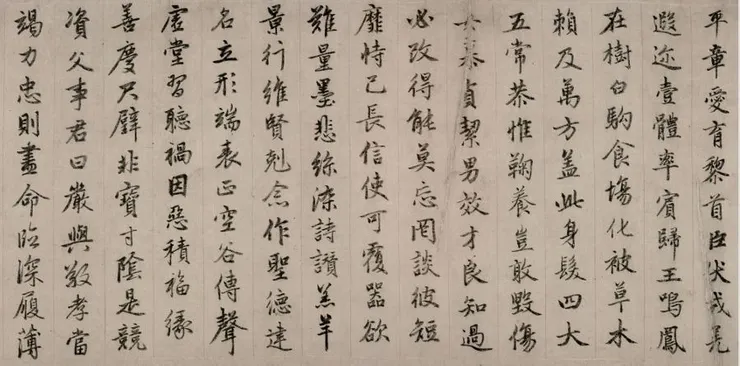 平章愛育黎首臣伏戎羌
遐迩壹體率賓歸王鳴鳳
在樹白駒食場化被草木
賴及萬方盖此身髮四大
五常恭惟鞠養豈敢毀傷
女慕貞絜男效才良知過
必改得能莫忘罔談彼短
靡恃己長信使可覆器欲
難量墨悲絲染詩讚羔羊
景行維賢剋念作聖德建
名立形端表正空谷傳聲
虛堂習聽禍因惡積福緣
善慶尺璧非寶寸陰是競
資父事君曰嚴與敬孝當
竭力忠則盡命臨深履薄